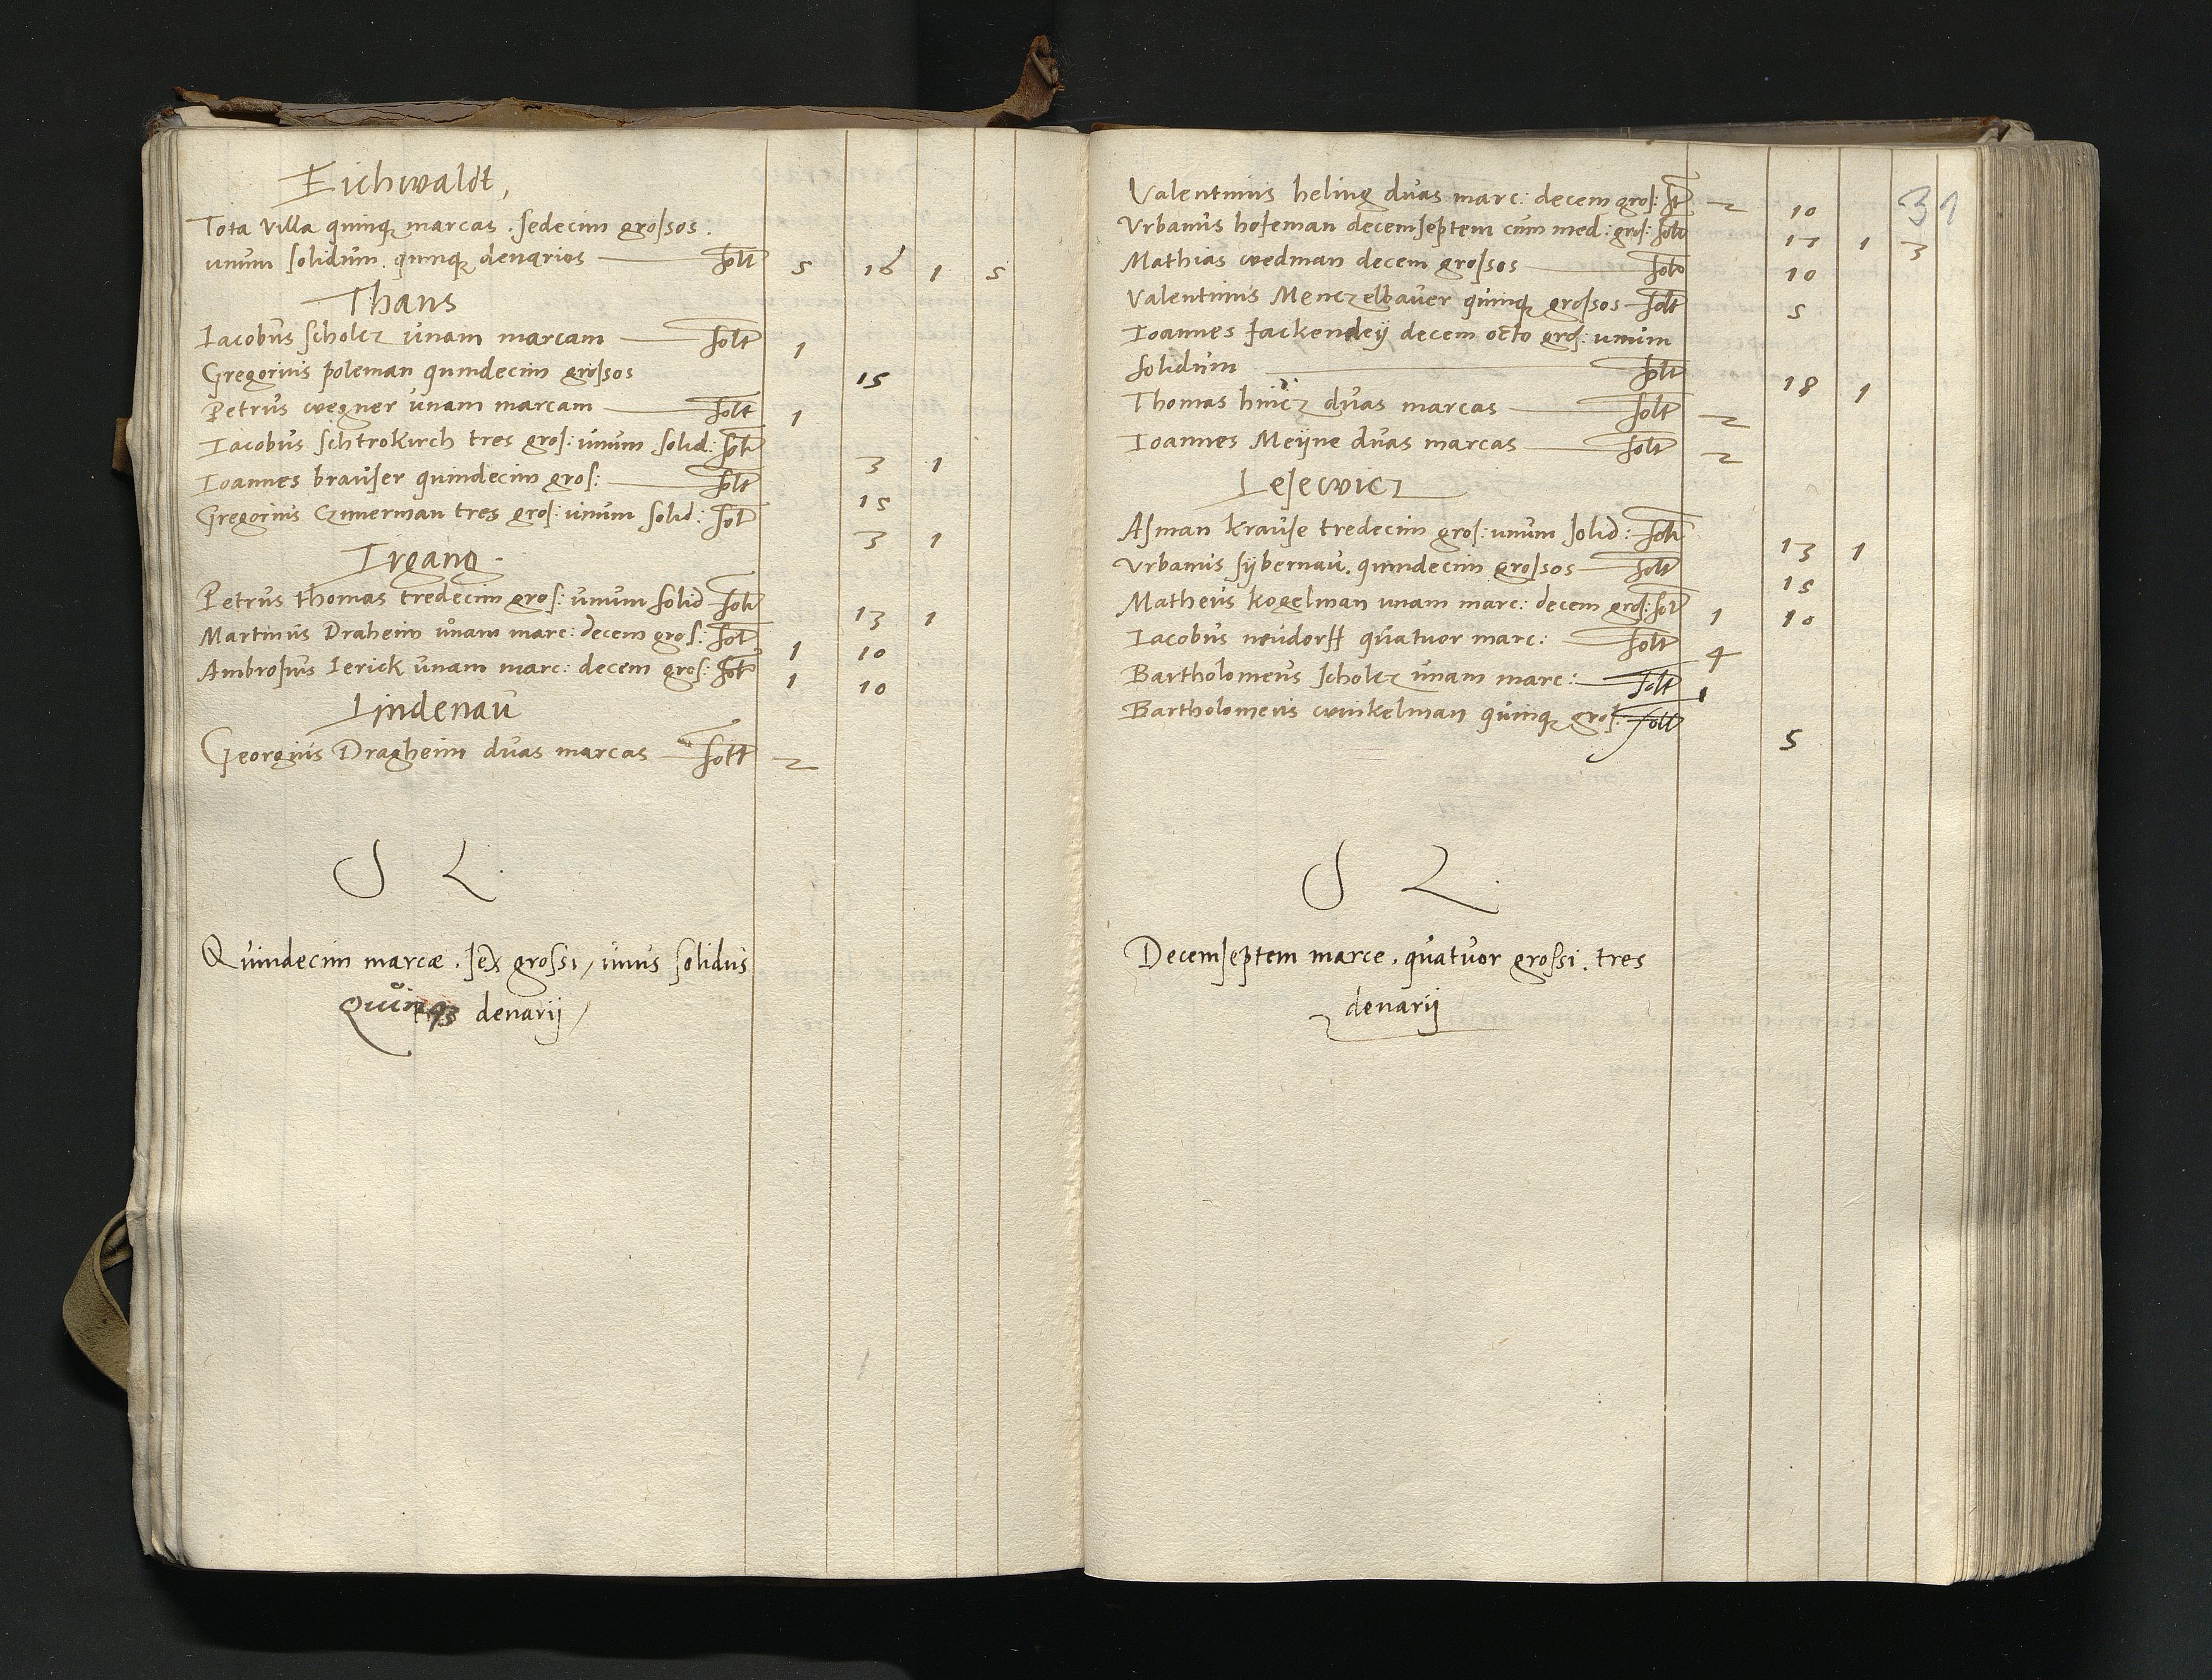 Eichwaldt,
Tota villa quinq3 marcas . sedecim grossos .
unum solidum . quinq3 denarios solt 5 16 1 5
Thans
Iacobus scholcz unam marcam solt 1
Gregorius poleman quindecim grossos 15
Petrus wegner unam marcam solt 1
Iacobus schtrokirch tres gros: unum solid: solt 3 1
Ioannes brauser quindecim gros: solt 15
Gregorius Czimerman tres gros: unum solid: solt 3 1
Irgang .
Petrus thomas tredecim gros: unum solid solt 13 1
Martinus Draheim unam marc: decem gros: solt 1 10
Ambrosius Ierick unam marc: decem gros: solt 1 10
Lindenau
Georgius Dragheim duas marcas solt 2
S L .
Quindecim marcæ . sex grossi / unus solidus
Quinq3 denarij /
31
Valentinus heling duas marc: decem gros: st 2 10
Urbanus hofeman decemseptem cum med: gros: solt 17 1 3
Mathias wedman decem grossos solt 10
Valentinus Menczelbauer quinq3 grossos solt 5
Ioannes fackendeÿ decem octo gros: unum
solidum solt 18 1
Thomas hincz duas marcas solt 2
Ioannes Meÿne duas marcas solt 2
Lesewicz
Asman krause tredecim gros: unum solid: solt 13 1
Urbanus sÿbernau . quindecim grossos solt 15
Matheus kogelman unam marc: decem gros: solt 1 10
Iacobus neudorff quatuor marc: solt 4
Bartholomeus scholcz unam marc: solt 1
Bartholomeus winkelman quinq3 gros: solt 5
S L .
Decemseptem marce . quatuor grossi . tres
denarij